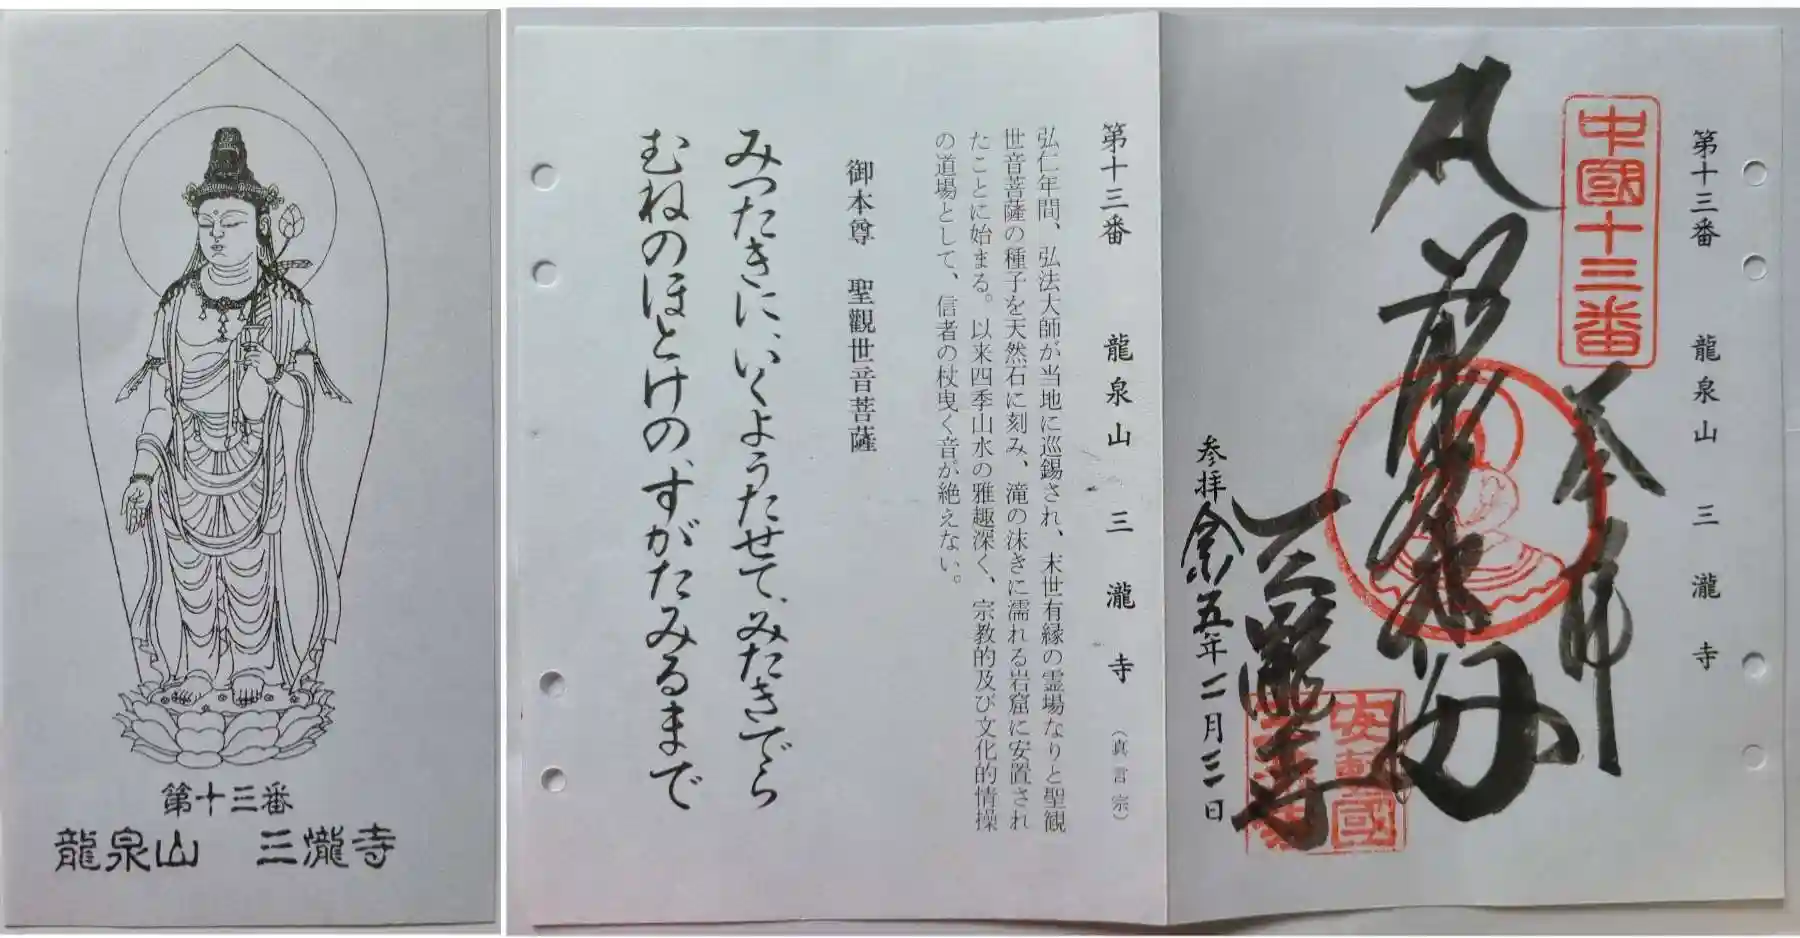 第十三番
龍泉山 三瀧寺
第十三番 龍泉山 三瀧寺
中國十三番
奉拝
三瀧寺
参拝 令和五年二月三日
第十三番 龍泉山 三瀧寺 (真言宗)
弘仁年間、弘法大師が当地に巡錫され、末世有縁の霊場なりと聖観
世音菩薩の種子を天然石に刻み、滝の沫きに濡れる岩窟に安置され
たことに始まる。以来四季山水の雅趣深く、宗教的及び文化的情操
の道場として、信者の杖曳く音が絶えない。
御本尊 聖觀世音菩薩
みつたきに、いくようたせて、みたきでら
むねのほとけの、ずがたみるまで